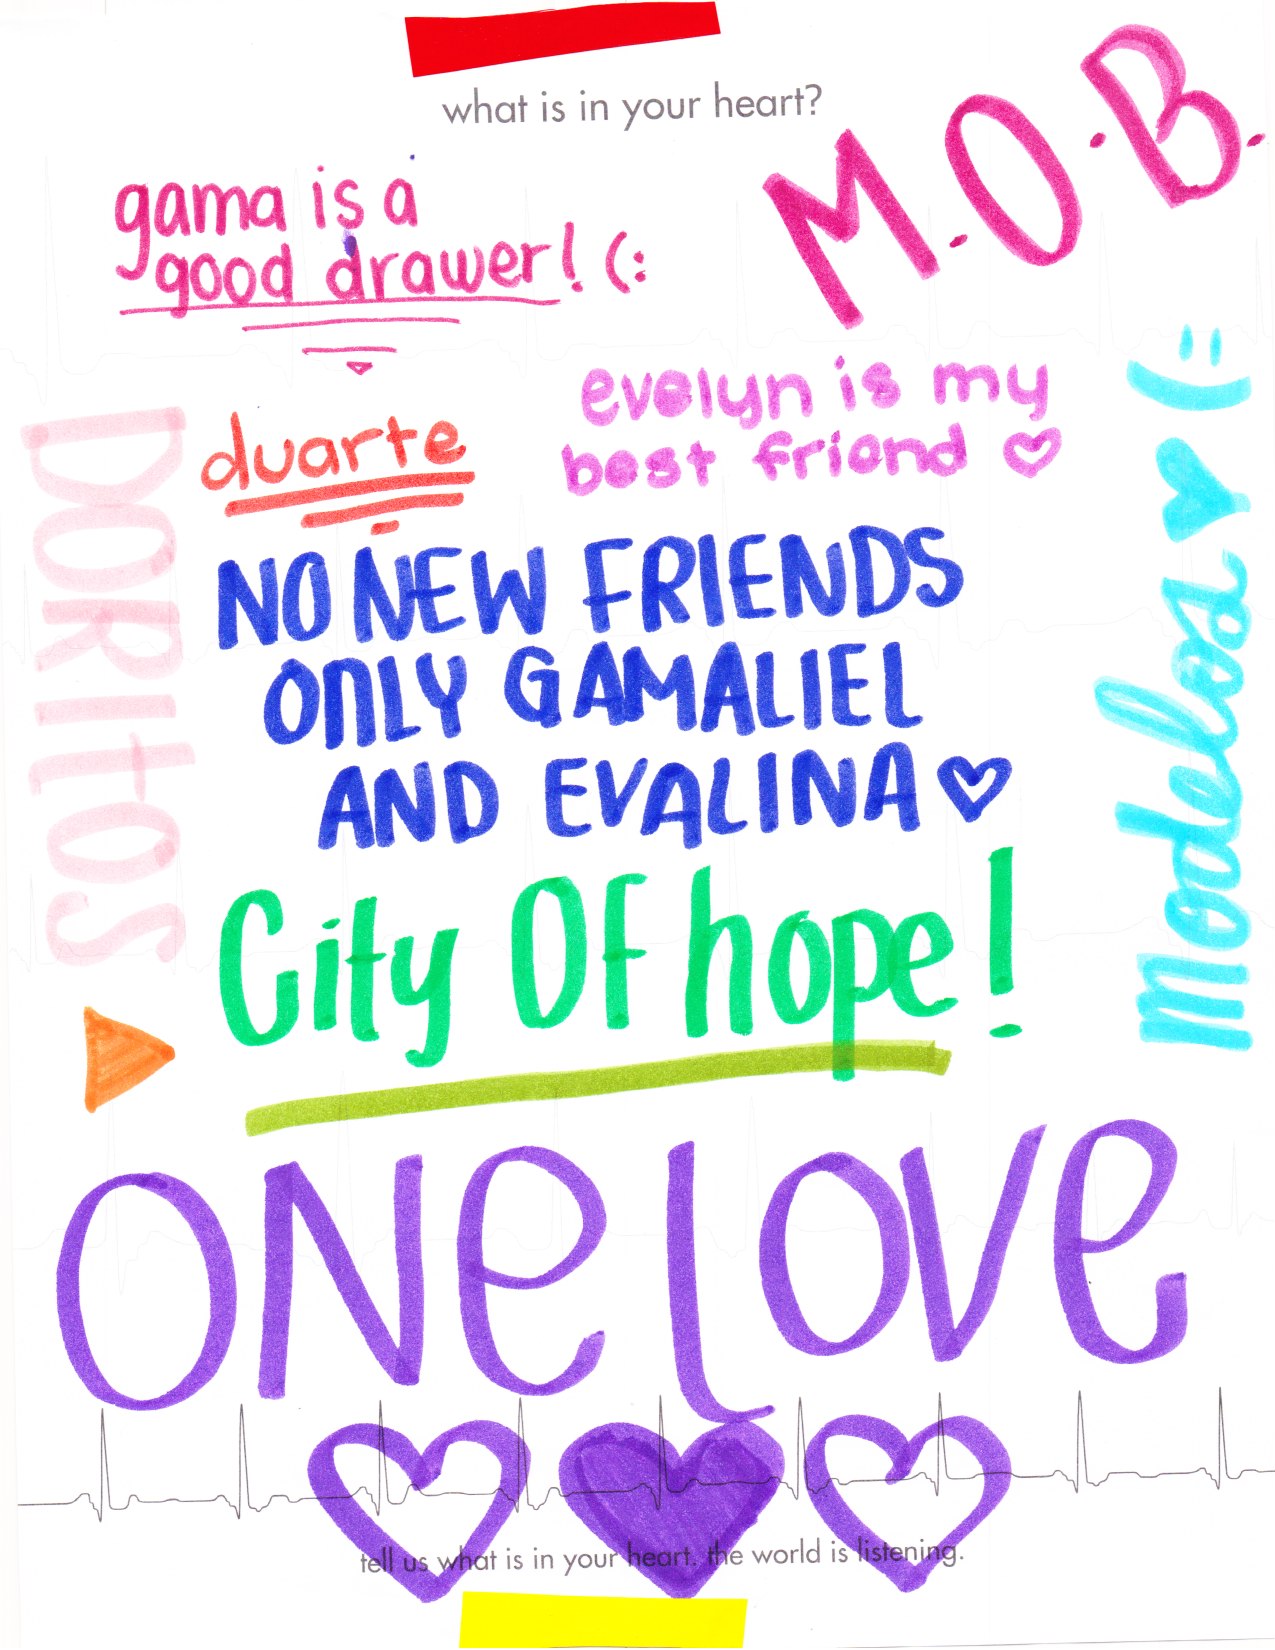 what is in your heart?
M.O.B.
gama is a
good drawer! (:
evelyn is my
best friend ♡
duarte
DORITOS
Modelos ♥ (=
NO NEW FRIENDS
ONLY GAMALIEL
AND EVALINA ♡
City OF hope!
ONE LOVE
tell us what is in your heart. the world is listening.